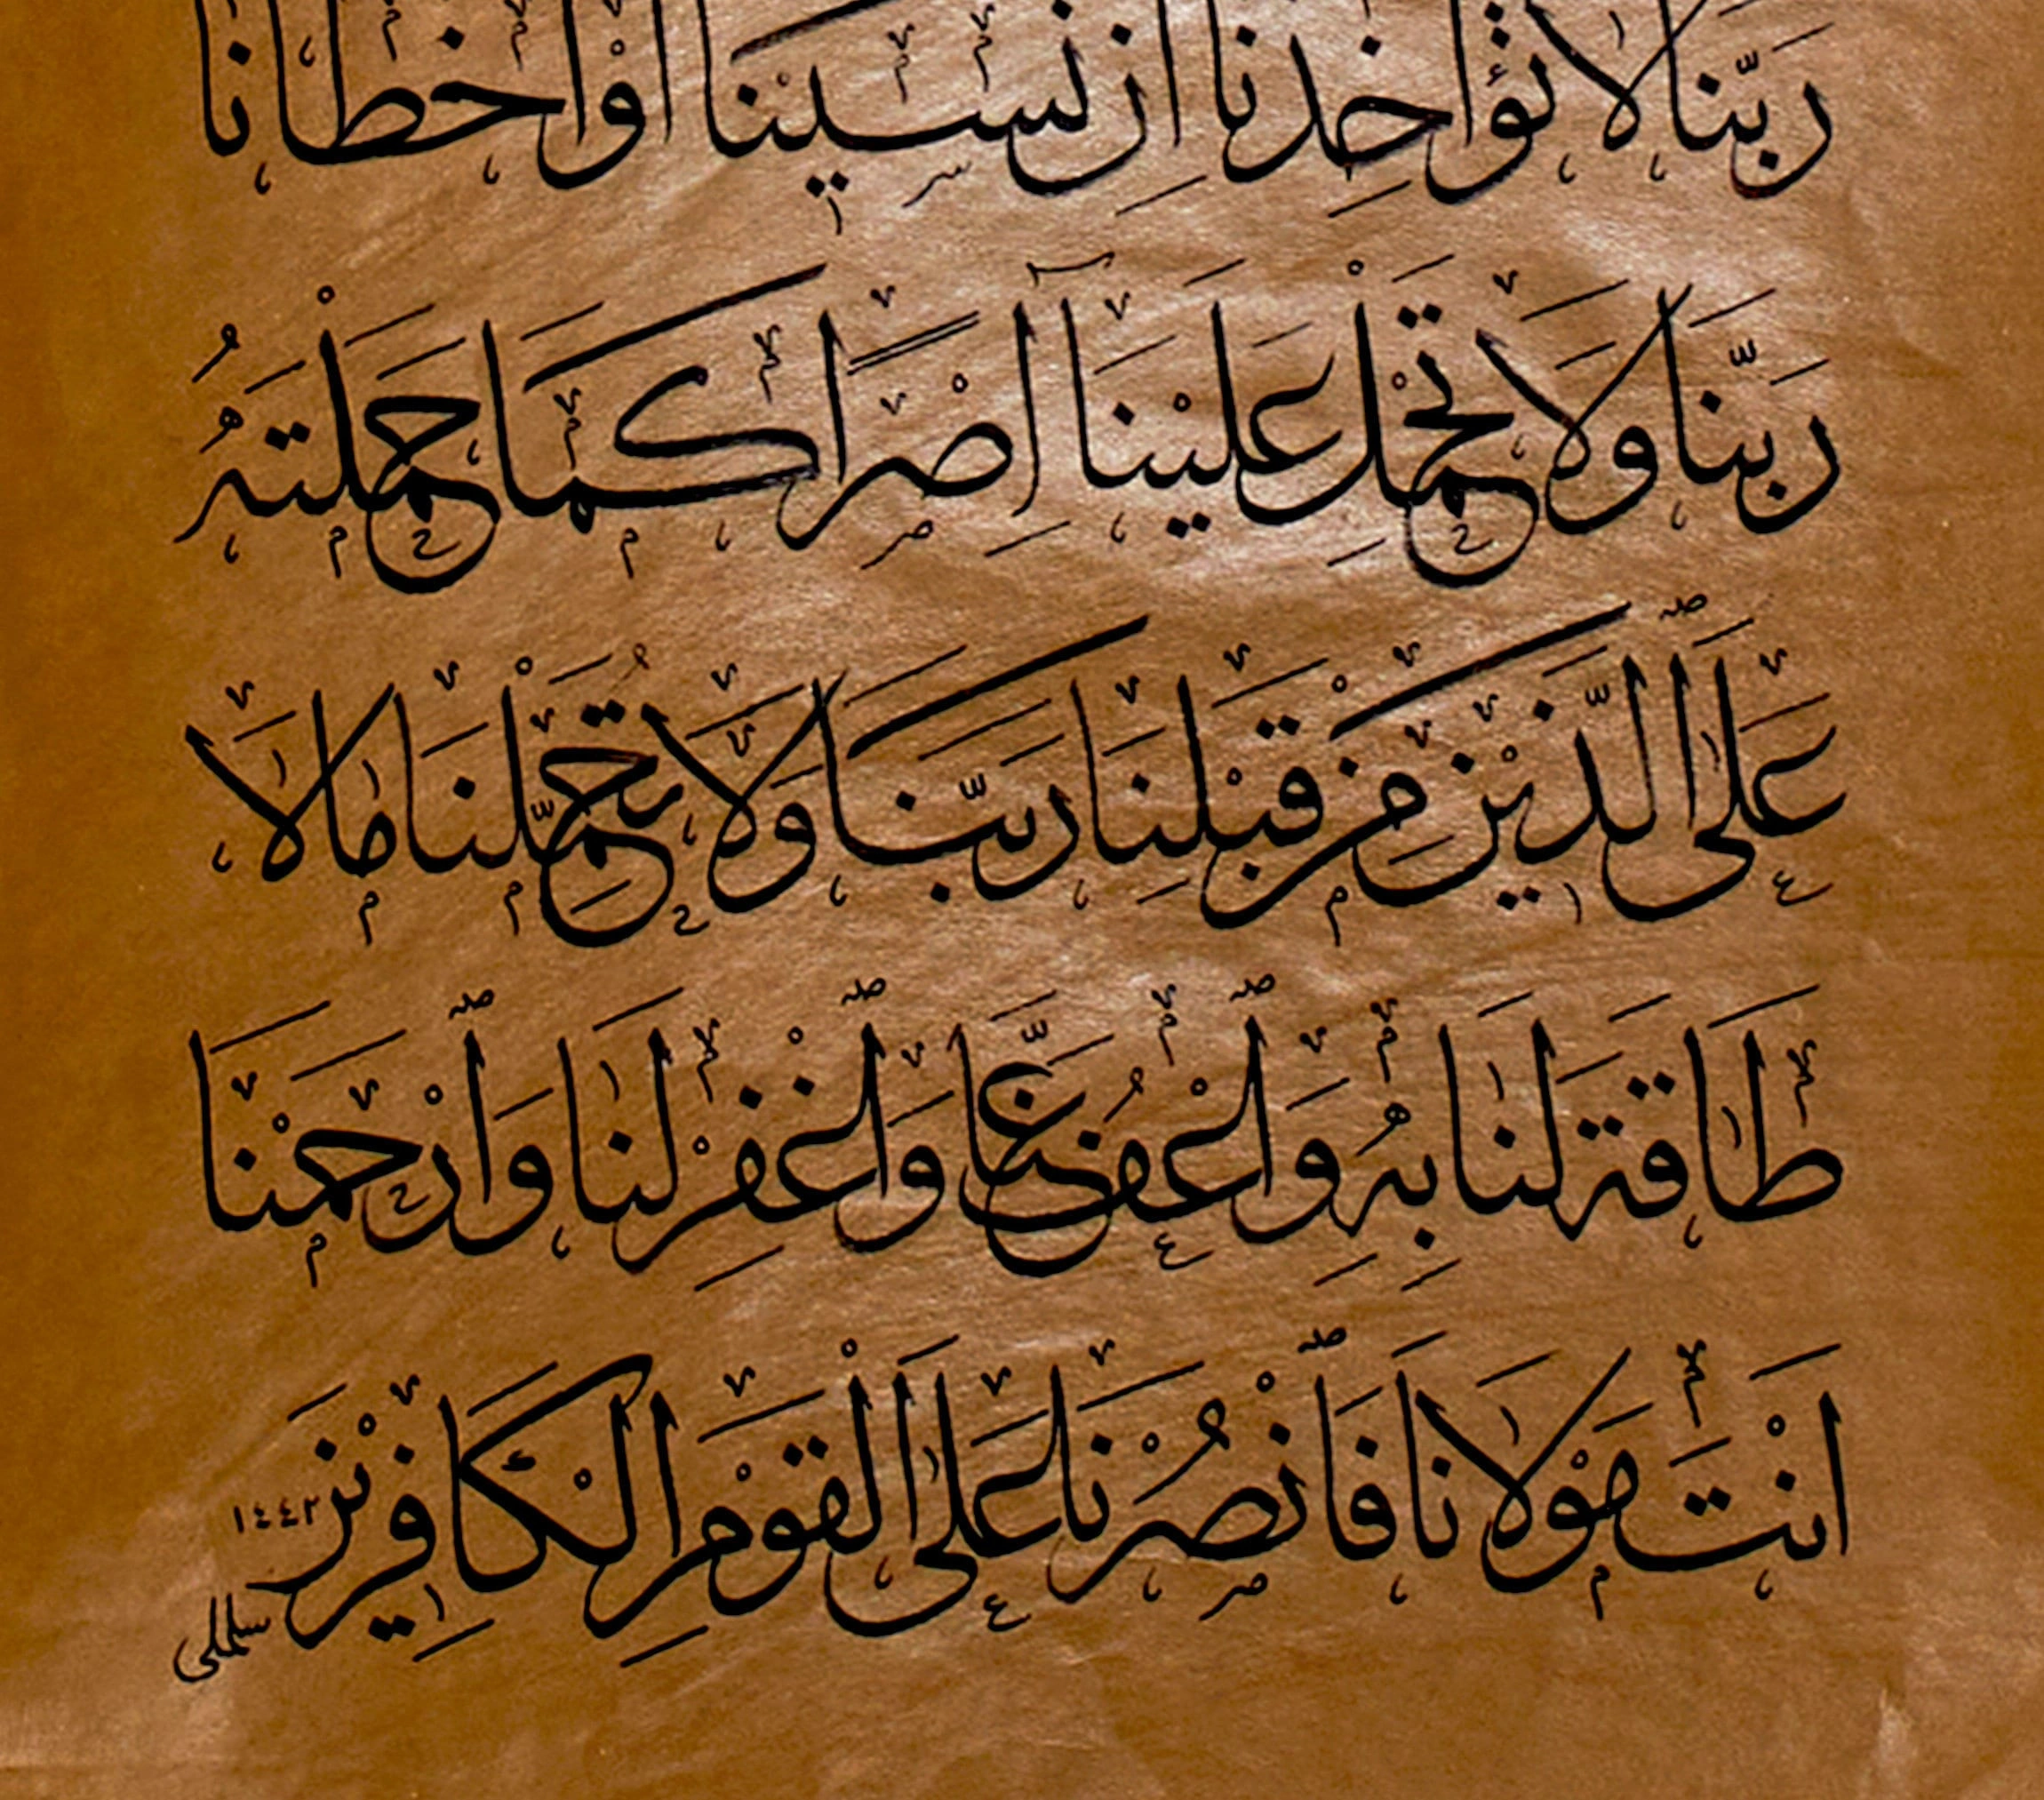 ربنا لا تؤاخذنا ان نسينا او اخطانا
رَبَّنَا وَلَا تَحْمِلْ عَلَيْنَآ اِصْرًا كَمَا حَمَلْتَهُ
عَلَى الَّذ۪ينَ مِنْ قَبْلِنَا رَبَّنَا وَلَا تُحَمِّلْنَا مَالَا
طَاقَةَ لَنَا بِهِ وَاعْفُ عَنَّا وَاغْفِرْ لَنَا وَارْحَمْنَا
اَنْتَ مَوْلَانَا فَانْصُرْنَا عَلَى الْقَوْمِ الْكَافِرِينَ
١٤٤٢